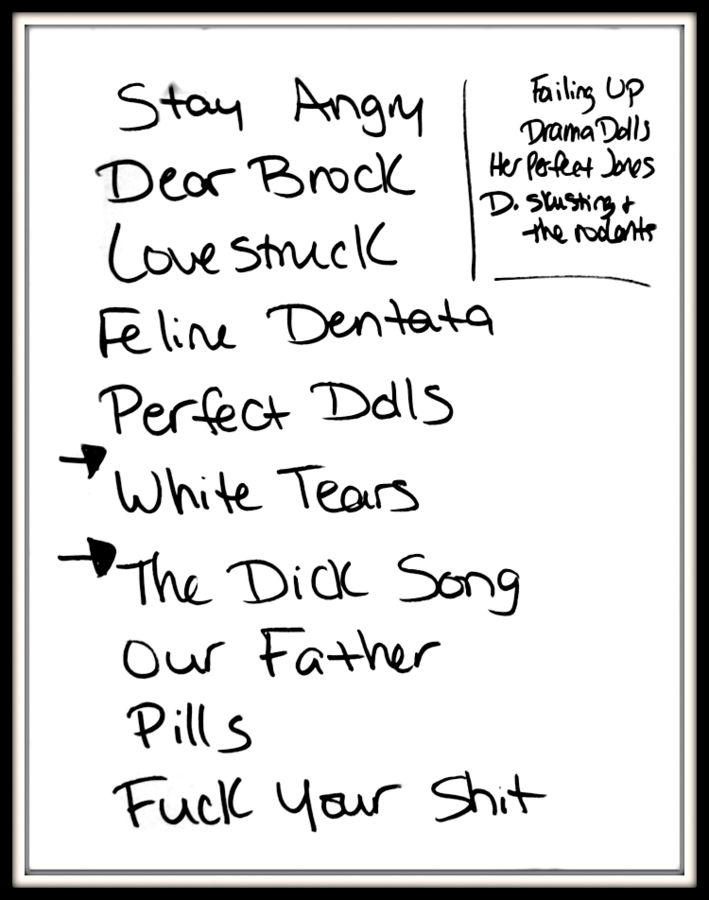 Stay Angry
Dear Brock
Lovestruck
Feline Dentata
Perfect Dolls
White Tears
The Dick Song
Our Father
Pills
Fuck Your Shit
Failing Up
Drama Dolls
Her Perfect Jones
D. Skusting +
the rodents